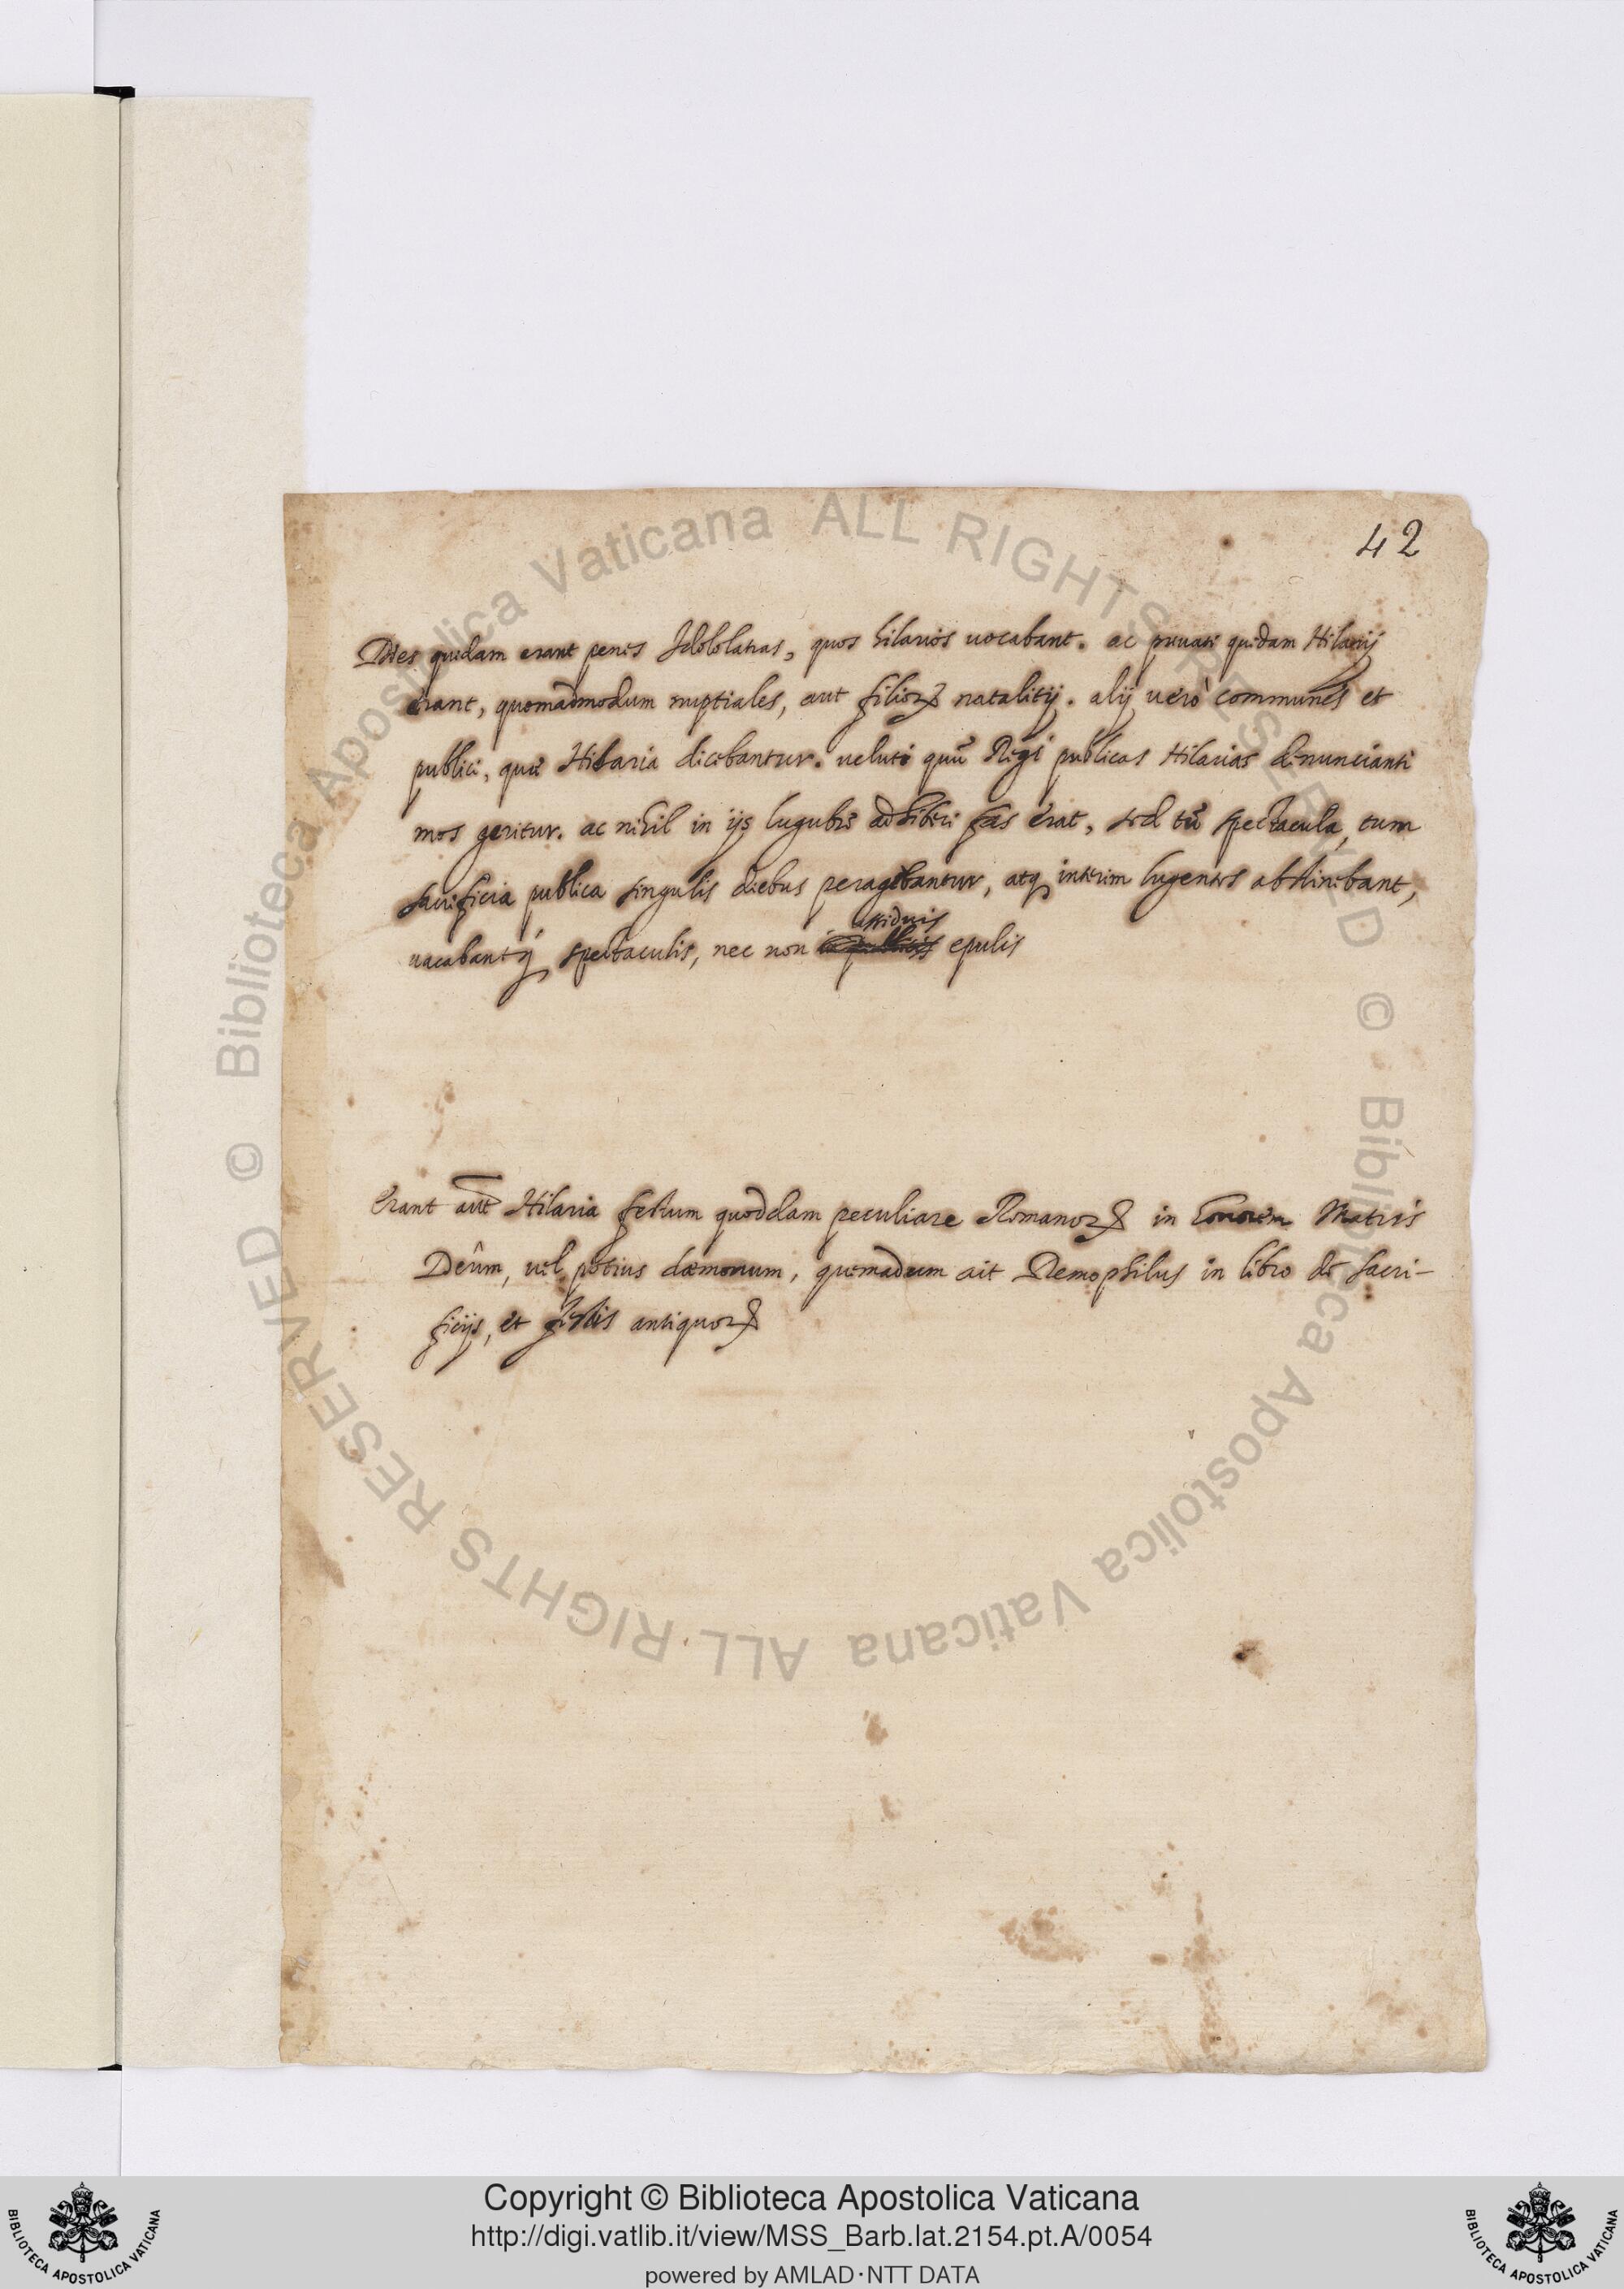 42
Dies quidam erant penes Idololatras, quos hilarios uocabant. ac priuati quidam Hilarij
erant, quemadmodum nuptiales, aut filioꝝ natalitij. alij uerò communes et
publici, qui Hilaria dicebantur. ueluti quū Regi publicas Hilarias denuncianti
mos geritur. ac nihil in ijs lugubre adhiberi fas erat, sed tū spectacula, tum
sacrificia publica singulis diebus peragebantur, atq interim lugentes abstinebant,
assiduis
uacabantq́ spectaculis, nec non epulis
Erant aūt Hilaria festum quoddam peculiare Romanoꝝ in honorem Matris
Deûm, uel potius dæmonum, quemadmum ait Demophilus in libro de sacri-
ficijs, et festis antiquoꝝ
© Biblioteca Apostolica Vaticana ALL RIGHTS RESERVED © Biblioteca Apostolica Vaticana ALL RIGHTS RESERVED
Copyright © Biblioteca Apostolica Vaticana
http://digi.vatlib.it/view/MSS_Barb.lat.2154.pt.A/0054
powered by AMLAD·NTT DATA
BIBLIOTECA APOSTOLICA VATICANA
BIBLIOTECA APOSTOLICA VATICANA